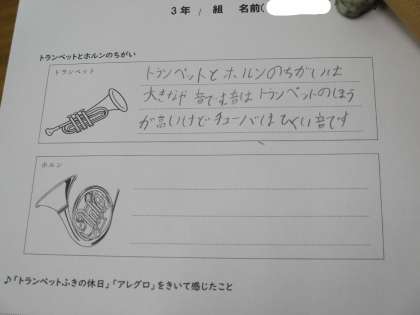 3年 1 組 名前(
トランペットとホルンのちがい
トランペット
トランペットとホルンのちがいは
大きなや音です音はトランペットのほう
が高いけどチューバはひくい音です
ホルン
♪「トランペットふきの休日」「アレグロ」をきいて感じたこと